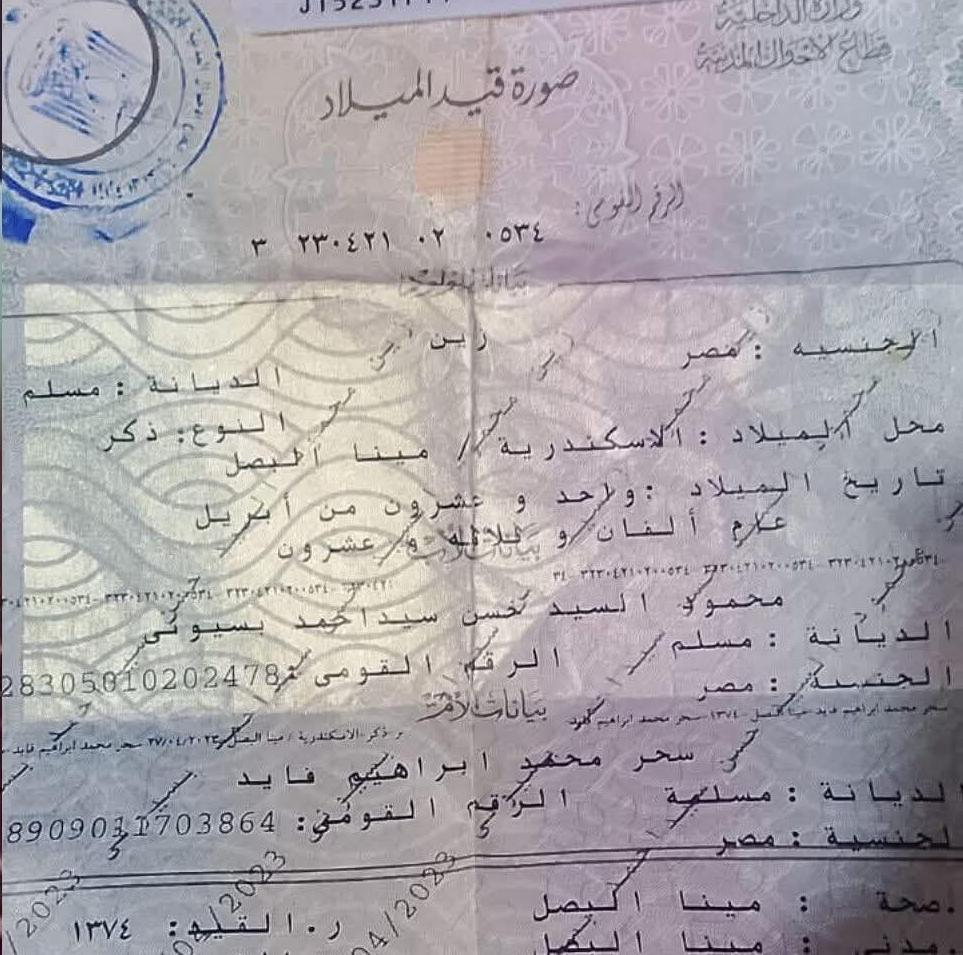 وزارة الداخلية
قطاع الأحوال المدنية
صورة قيد الميلاد
الرقم القومى :
٣ ٢٣٠٤٢١ ٠٢ ٠٥٣٤
زين
الجنسيه : مصر
الديانة : مسلم
محل الميلاد : الاسكندرية / مينا البصل
النوع: ذكر
تاريخ الميلاد : واحد و عشرون من أبريل
عام ألفان و ثلاثة و عشرون
بيانات الأب
محمود السيد حسن سيداحمد بسيونى
الديانة : مسلم الرقم القومى : 28305010202478
الجنسية : مصر
بيانات الأم
سحر محمد ابراهيم فايد
الديانة : مسلمة الرقم القومي: 8909011703864
لجنسية : مصر
صحة : مينا البصل
ر.القيد: ١٣٧٤
مدنى : مينا البصل